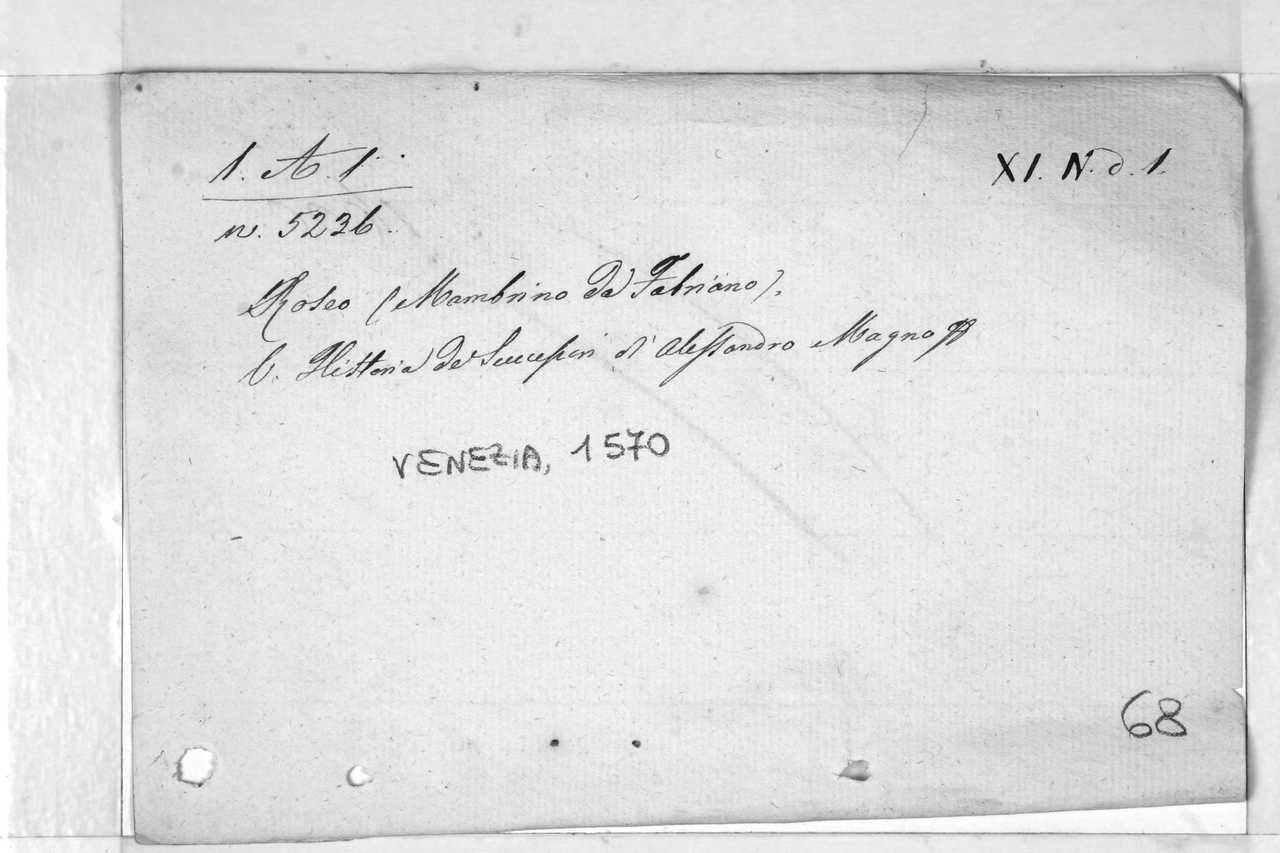 1. A. 1.
XI. N. d. 1.
n. 5236.
Roseo (Mambrino da Fabriano).
L'Historia de' Successori di Alessandro Magno
VENEZIA, 1570
68